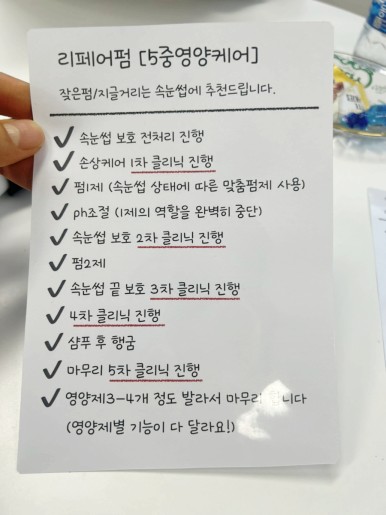 리페어펌 [5중영양케어]
잦은펌/지글거리는 속눈썹에 추천드립니다.
✔ 속눈썹 보호 전처리 진행
✔ 손상케어 1차 클리닉 진행
✔ 펌1제 (속눈썹 상태에 따른 맞춤펌제 사용)
✔ ph조절 (1제의 역할을 완벽히 중단)
✔ 속눈썹 보호 2차 클리닉 진행
✔ 펌2제
✔ 속눈썹 끝 보호 3차 클리닉 진행
✔ 4차 클리닉 진행
✔ 샴푸 후 헹굼
✔ 마무리 5차 클리닉 진행
✔ 영양제3-4개 정도 발라서 마무리
(영양제별 기능이 다 달라요!)